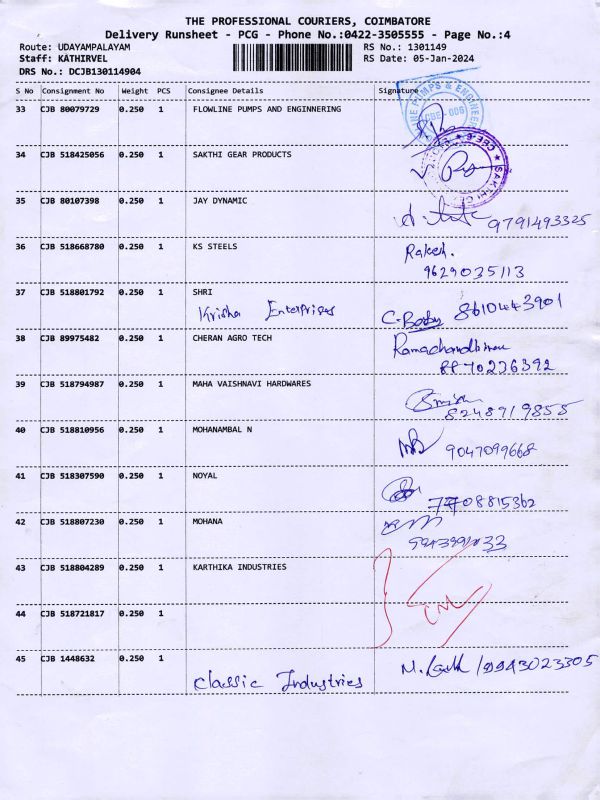 THE PROFESSIONAL COURIERS, COIMBATORE
Delivery Runsheet - PCG - Phone No.:0422-3505555 - Page No.:4
Route: UDAYAMPALAYAM RS No.: 1301149
Staff: KATHIRVEL RS Date: 05-Jan-2024
DRS No.: DCJB130114904
S No Consignment No Weight PCS Consignee Details Signature
33 CJB 80079729 0.250 1 FLOWLINE PUMPS AND ENGINNERING
34 CJB 518425056 0.250 1 SAKTHI GEAR PRODUCTS
35 CJB 80107398 0.250 1 JAY DYNAMIC
9791493325
36 CJB 518668780 0.250 1 KS STEELS Rakesh.
9629035113
37 CJB 518801792 0.250 1 SHRI
Krisha Enterprises 8610443901
38 CJB 89975482 0.250 1 CHERAN AGRO TECH
8870226392
39 CJB 518794987 0.250 1 MAHA VAISHNAVI HARDWARES
8248919855
40 CJB 518810956 0.250 1 MOHANAMBAL N
9047099668
41 CJB 518307590 0.250 1 NOYAL
7708815362
42 CJB 518807230 0.250 1 MOHANA
43 CJB 518804289 0.250 1 KARTHIKA INDUSTRIES
44 CJB 518721817 0.250 1
45 CJB 1448632 0.250 1 9943023305
Classic Industries